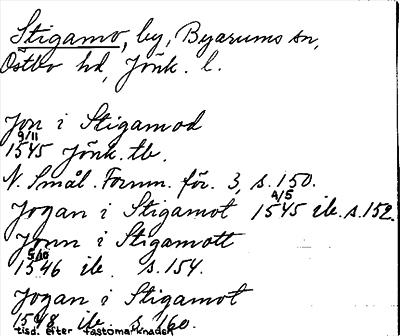 Stigamo, by, Byarums sn,
Östbo hd, Jönk. l.
Jon i Stigamod
9/11
1545 Jönk. tb.
N. Smål. Fornm. för. 3, s. 150.
Jogan i Stigamot 1545 ib. s. 152.
4/5
Jonn i Stigamott
5/10
1546 ib. s. 154.
Jogan i Stigamot
1548 ib. s. 160.
tisd. efter fastomarknaden